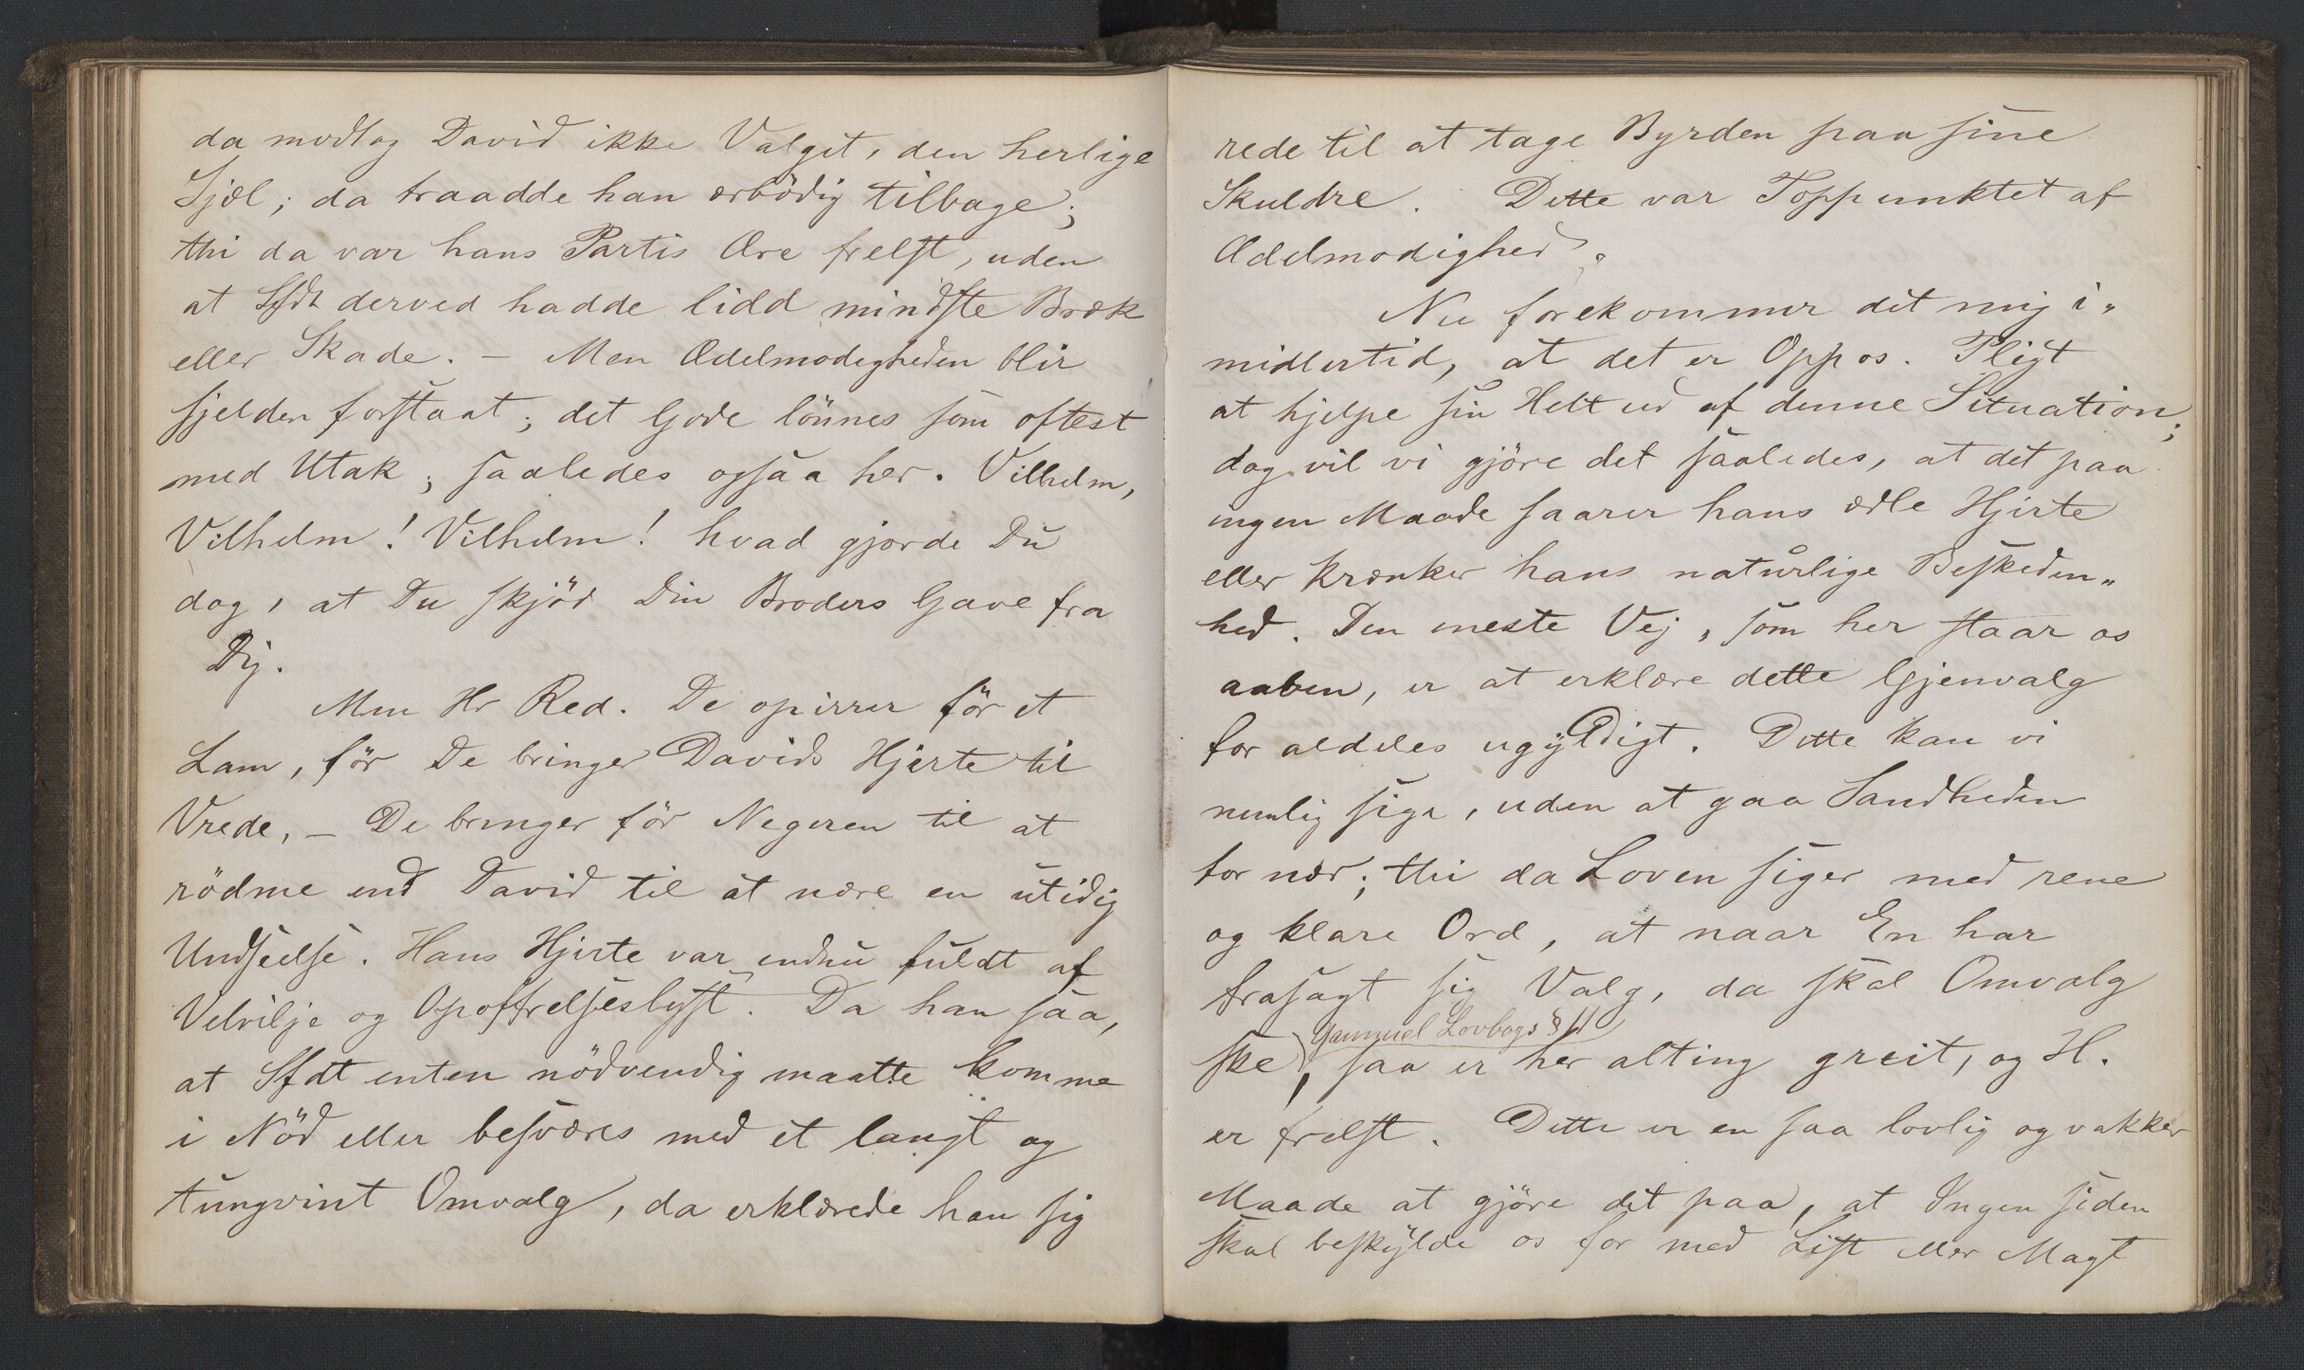 da modtog David ikke Valget, den herlige
Sjæl; da traadde han ærbödig tilbage;
thi da var hans Partis Ære frelst, uden
at Sfdt derved hadde lidd mindste Bræk
eller Skade. – Men Ædelmodigheden blir
sjelden forstaat; det Gode lönnes som oftest
med Utak; saaledes ogsaa her. Vilhelm,
Vilhelm! Vilhelm! hvad gjorde Du
dog, at Du skjöd Din Broders Gave fra
Dig.
Men Hr Red. De opirrer för et
Lam, för De bringer Davids Hjerte til
Vrede, – De bringer för Negeren til at
rödme end David til at nære en utidig
Undseelse. Hans Hjerte var endnu fuldt af
Velvilje og Opoffrelseslyst. Da han saa,
at Sfdt enten nödvendig maatte komme
i Nöd eller besværes med et langt og
tungvint Omvalg, da erklærede han sig
rede til at tage Byrden paa sine
Skuldre. Dette var Toppunktet af
Ædelmodighed.
Nu forekommer det mig i„
midlertid, at det er Oppos. Pligt
at hjelpe sin Helt ud af denne Situation;
dog vil vi gjöre det saaledes, at det paa
ingen Maade saarer hans ædle Hjerte
eller krænker hans naturlige Beskeden„
hed. Den eneste Vej, som her staar os
aaben, er at erklære dette Gjenvalg
for aldeles ugyldigt. Dette kan vi
nemlig sige, uden at gaa Sandheden
for nær; thi da Loven siger med rene
og klare Ord, at naar En har
frasagt sig Valg, da skal Omvalg
Gammel Lovbogs § 11
ske, saa er her alting greit, og H.
er frelst. Dette er en saa lovlig og vakker
Maade at gjöre det paa, at Ingen siden
skal beskylde os for med List eller Magt